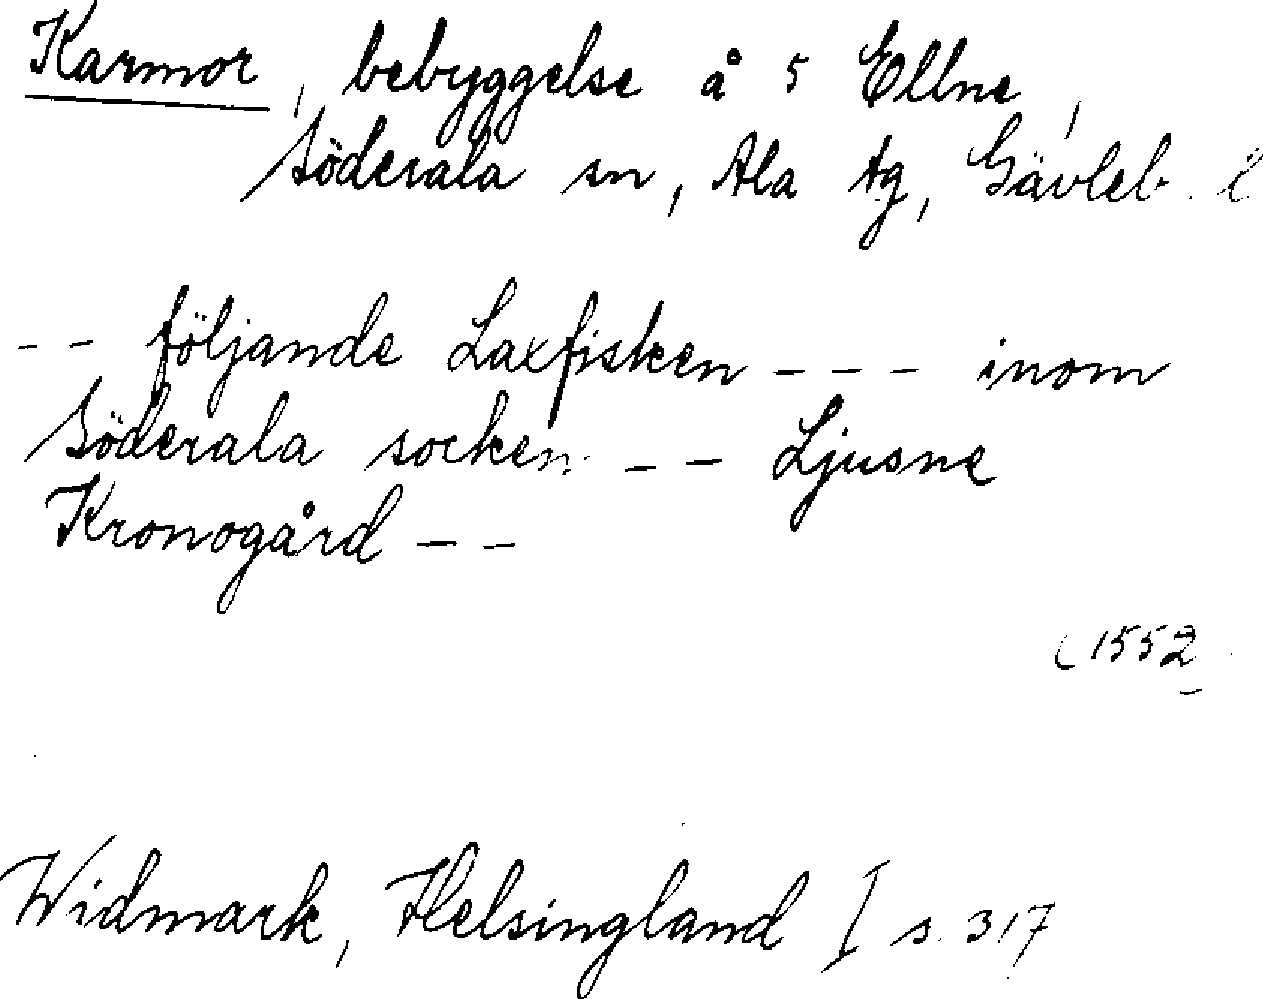 Karmor, bebyggelse å 5 Ellne,
Söderala sn, Ala tg, Gävleb. l
-- följande Laxfisken --- inom
Söderala socken -- Ljusne
Kronogård --
(1552
Widmark, Helsingland I s. 317